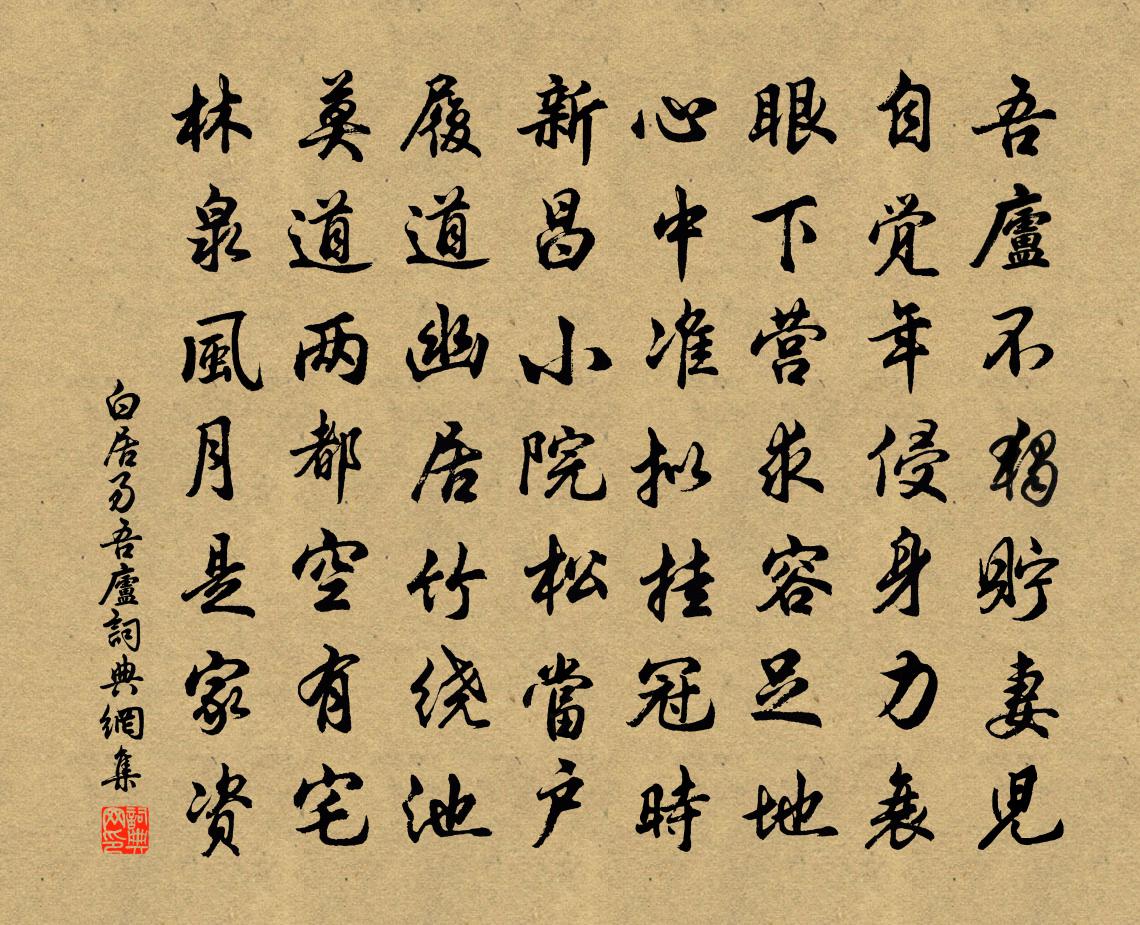 吾廬不獨貯妻兒
自覚年侵身力衰
眼下营求容足地
心中准拟挂冠時
新昌小院松當户
履道幽居竹绕池
莫道两都空有宅
林泉風月是家资
白居易吾廬詞典網集
詞典網印